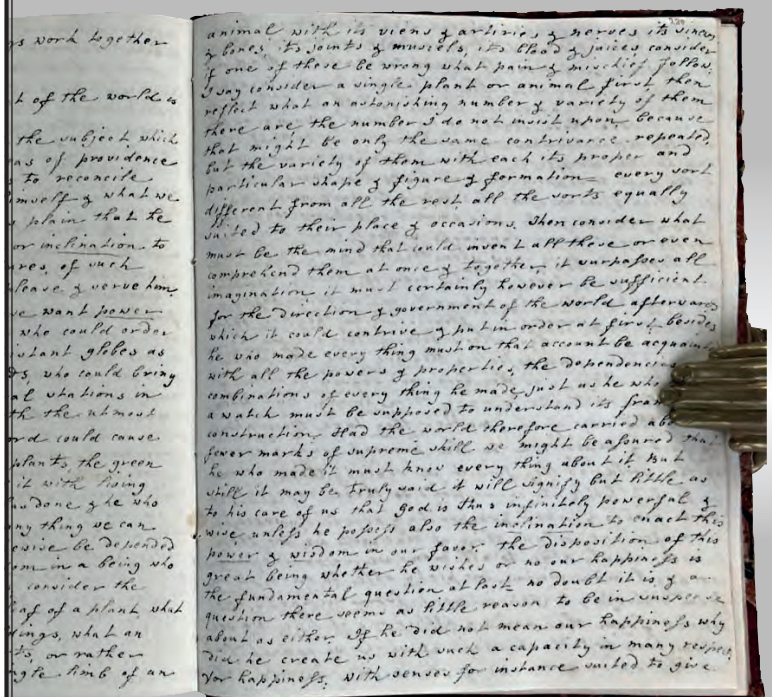 rs work together
t of the world is
the subject which
as of providence
s to reconcile
imself & what we
s plain that he
or inclination to
ures, of such
please & serve him
we want power
who could order
istant globes as
rs, who could bring
al stations in
th the utmost
ord could cause
plants, the green
it with living
has done & he who
any thing we can
ewise be depended
om in a being who
consider the
leaf of a plant what
dings, what an
ts or rather
ngle limb of an
animal with its viens & artiries & nerves its sinews
& bones, its joints & muscels, its blood & juices consider
if one of these be wrong what pain & mischief follow,
I say consider a single plant or animal first then
reflect what an astonishing number & variety of them
there are the number I do not insist upon because
that might be only the same contrivance repeated,
but the variety of them with each its proper and
particular shape & figure & formation every sort
different from all the rest all the sorts equally
suited to their place & occasions. Then consider what
must be the mind that could invent all these or even
comprehend them at once & together, it surpasses all
imagination it must certainly however be sufficient
for the direction & government of the world afterwards
which it could contrive & put in order at first, besides
he who made every thing must on that account be
with all the powers & properties, the dependencies
combinations of every thing he made, just as he who
a watch must be supposed to understand its
construction. Had the world therefore carried
fewer marks of supreme skill we might be assured that
he who made it must know every thing about it But
still it may be truly said it will signify but little as
to his care of us that God is thus infinitely powerful &
wise unless he possess also the inclination to enact this
power & wisdom in our favor. the disposition of this
great being whether he wishes or no our happiness is
the fundamental question at last no doubt it is & a
question there seems as little reason to be in suspense
about as either. If he did not mean our happiness why
did he create us with such a capacity in many respects
for happiness, with senses for instance suited to give